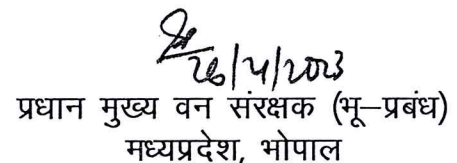 26/4/2023
प्रधान मुख्य वन संरक्षक (भू–प्रबंध)
मध्यप्रदेश, भोपाल